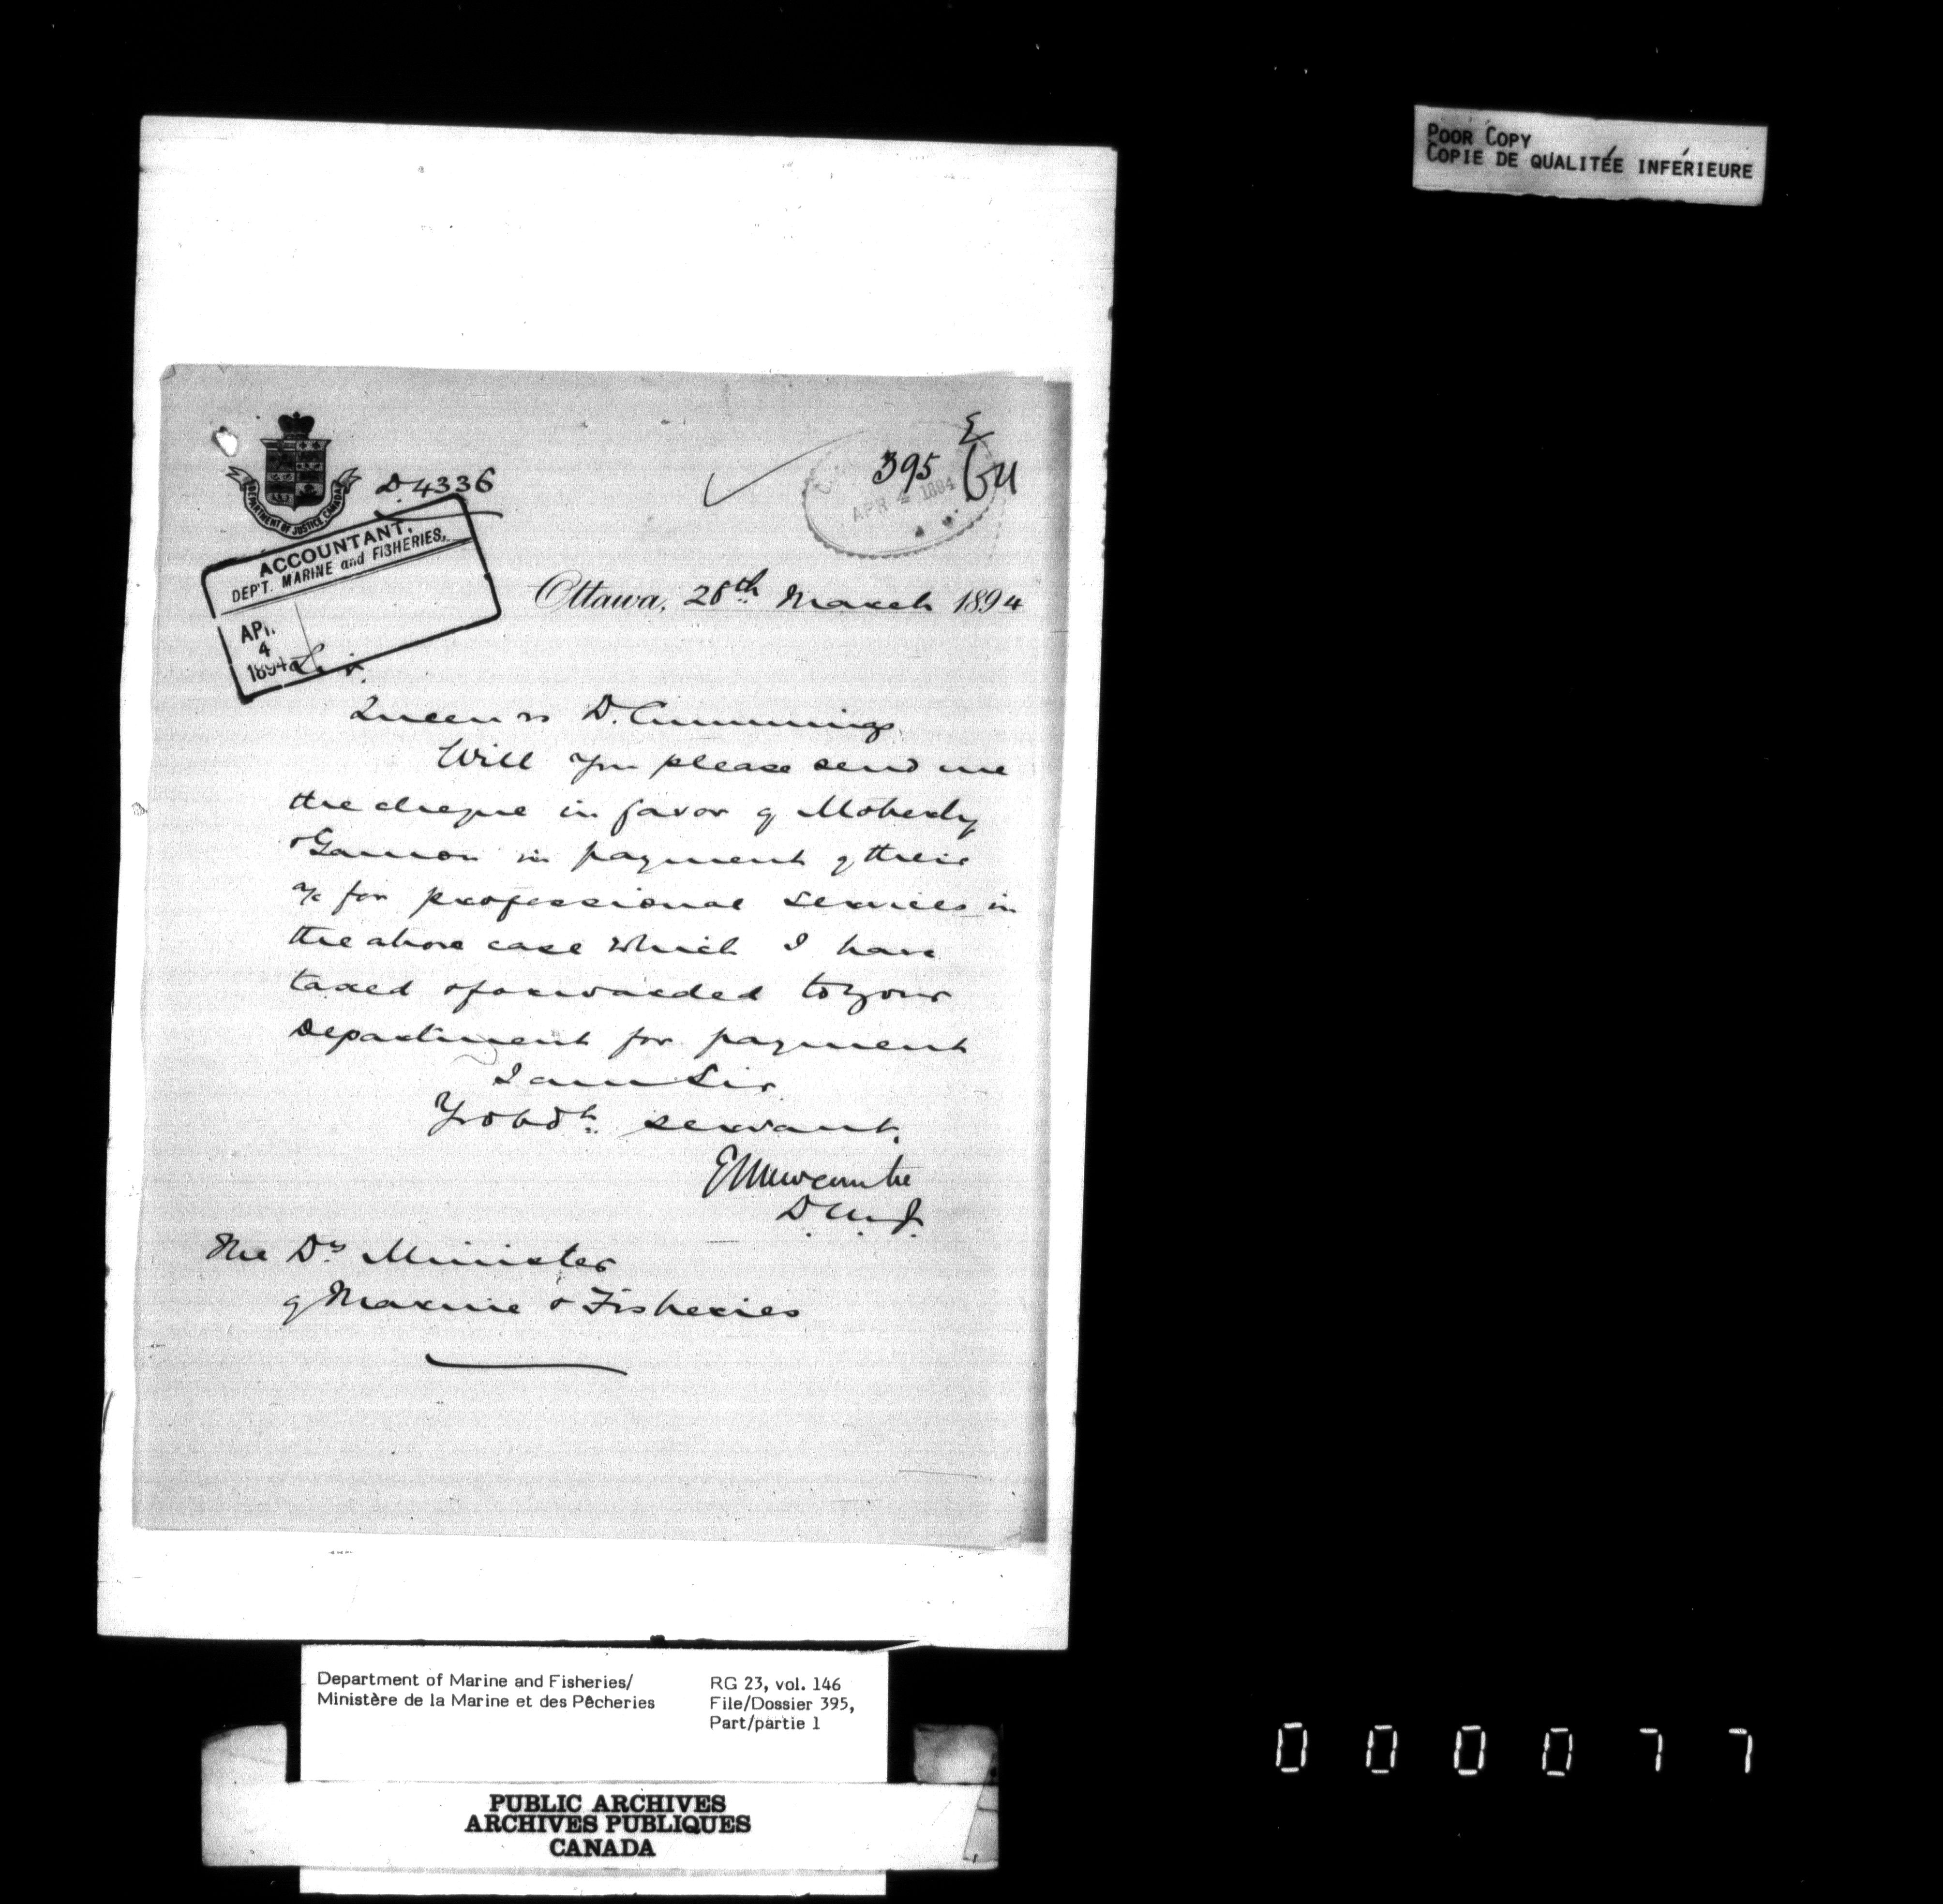 POOR COPY
COPIE DE QUALITÉE INFÉRIEURE
DEPARTMENT OF JUSTICE, CANADA
D. 4336
395
APR 4 1894
ACCOUNTANT,
DEP'T. MARINE and FISHERIES,
APR.
4
1894
Ottawa, 28th March 1894
Sir.
Queen vs D. Cummings.
Will you please send me
the cheque in favor of Moberly
& Gamon in payment of their
a/c for professional services in
the above case which I have
taxed & forwarded to your
Department for payment
I am Sir
Yr obdt. servant.
E L Newcombe
D. M. J.
The Dy. Minister
of Marine & Fisheries
Department of Marine and Fisheries/
Ministère de la Marine et des Pêcheries
RG 23, vol. 146
File/Dossier 395,
Part/partie 1
PUBLIC ARCHIVES
ARCHIVES PUBLIQUES
CANADA
0 0 0 0 7 7